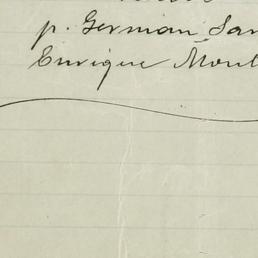 p. German San
Enrique Mont